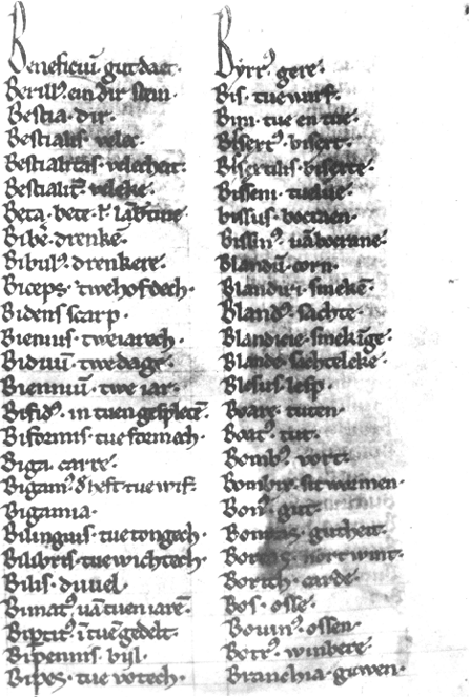 Beneficiū· gutdaet·
Berill᷒· ein dir stein·
Bestia· dir·
Bestialis· velec·
Bestialitas· velecheit·
Bestialit᷒· velcke·
Beta· bete·
Bibe᷒· drenke·
Bibul᷒· drenkere·
Biceps· twehofdech·
Bidens scarp·
Biennus· tweiarech·
Biduū· twedage·
Bienniū· twe iar·
Bifid᷒· in tuen gespletē·
Biformis· tueformech·
Biga· carre·
Bigam᷒· heft tue wif·
Bigamia·
Bilinguis· tuetongech·
Bilibris· tuewichtech·
Bilis· duuel·
Bimat᷒· uā tuen iarē·
Biptit᷒· ī tuē gedelt·
Bipennis· byl·
Bipes· tue votech·
Byrr᷒· gere·
Bis· tuewurf·
Bini· tue en tue·
Bisert᷒· bisert·
Bisertilis· biserte·
Bisseni· tuelue·
bissus· bocraen·
Bissin᷒· uā bocrane·
Blandū· corn·
Blandiri· smekē·
Bland᷒· sachte·
Blandicie· smekīge·
Blande· sachtelcke·
Blesus· lesp·
Boare· tuten·
Boat᷒· tut·
Bomb᷒· vort·
Bombix· sie wormen·
Bon᷒· gut·
Bonitas· gutheit·
Boreas· nortwint·
Borith· carde·
Bos· osse·
Bouin᷒· ossen·
Botr᷒· winbere·
Branchia· gewen·